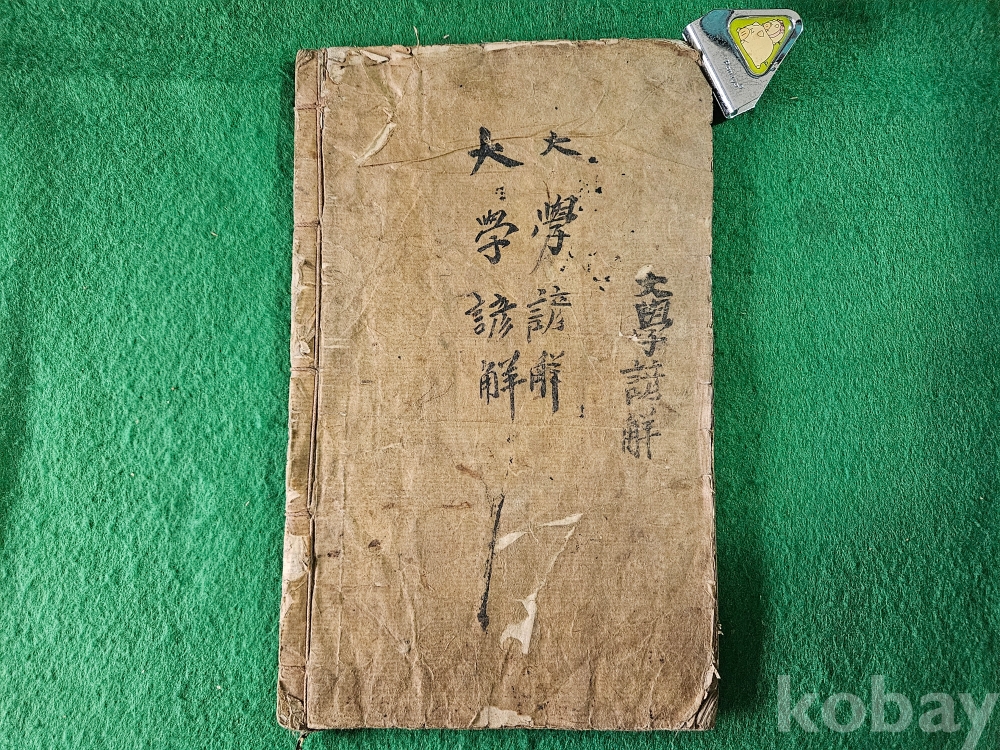 大學諺解
大學諺解
大学諺解
kobay